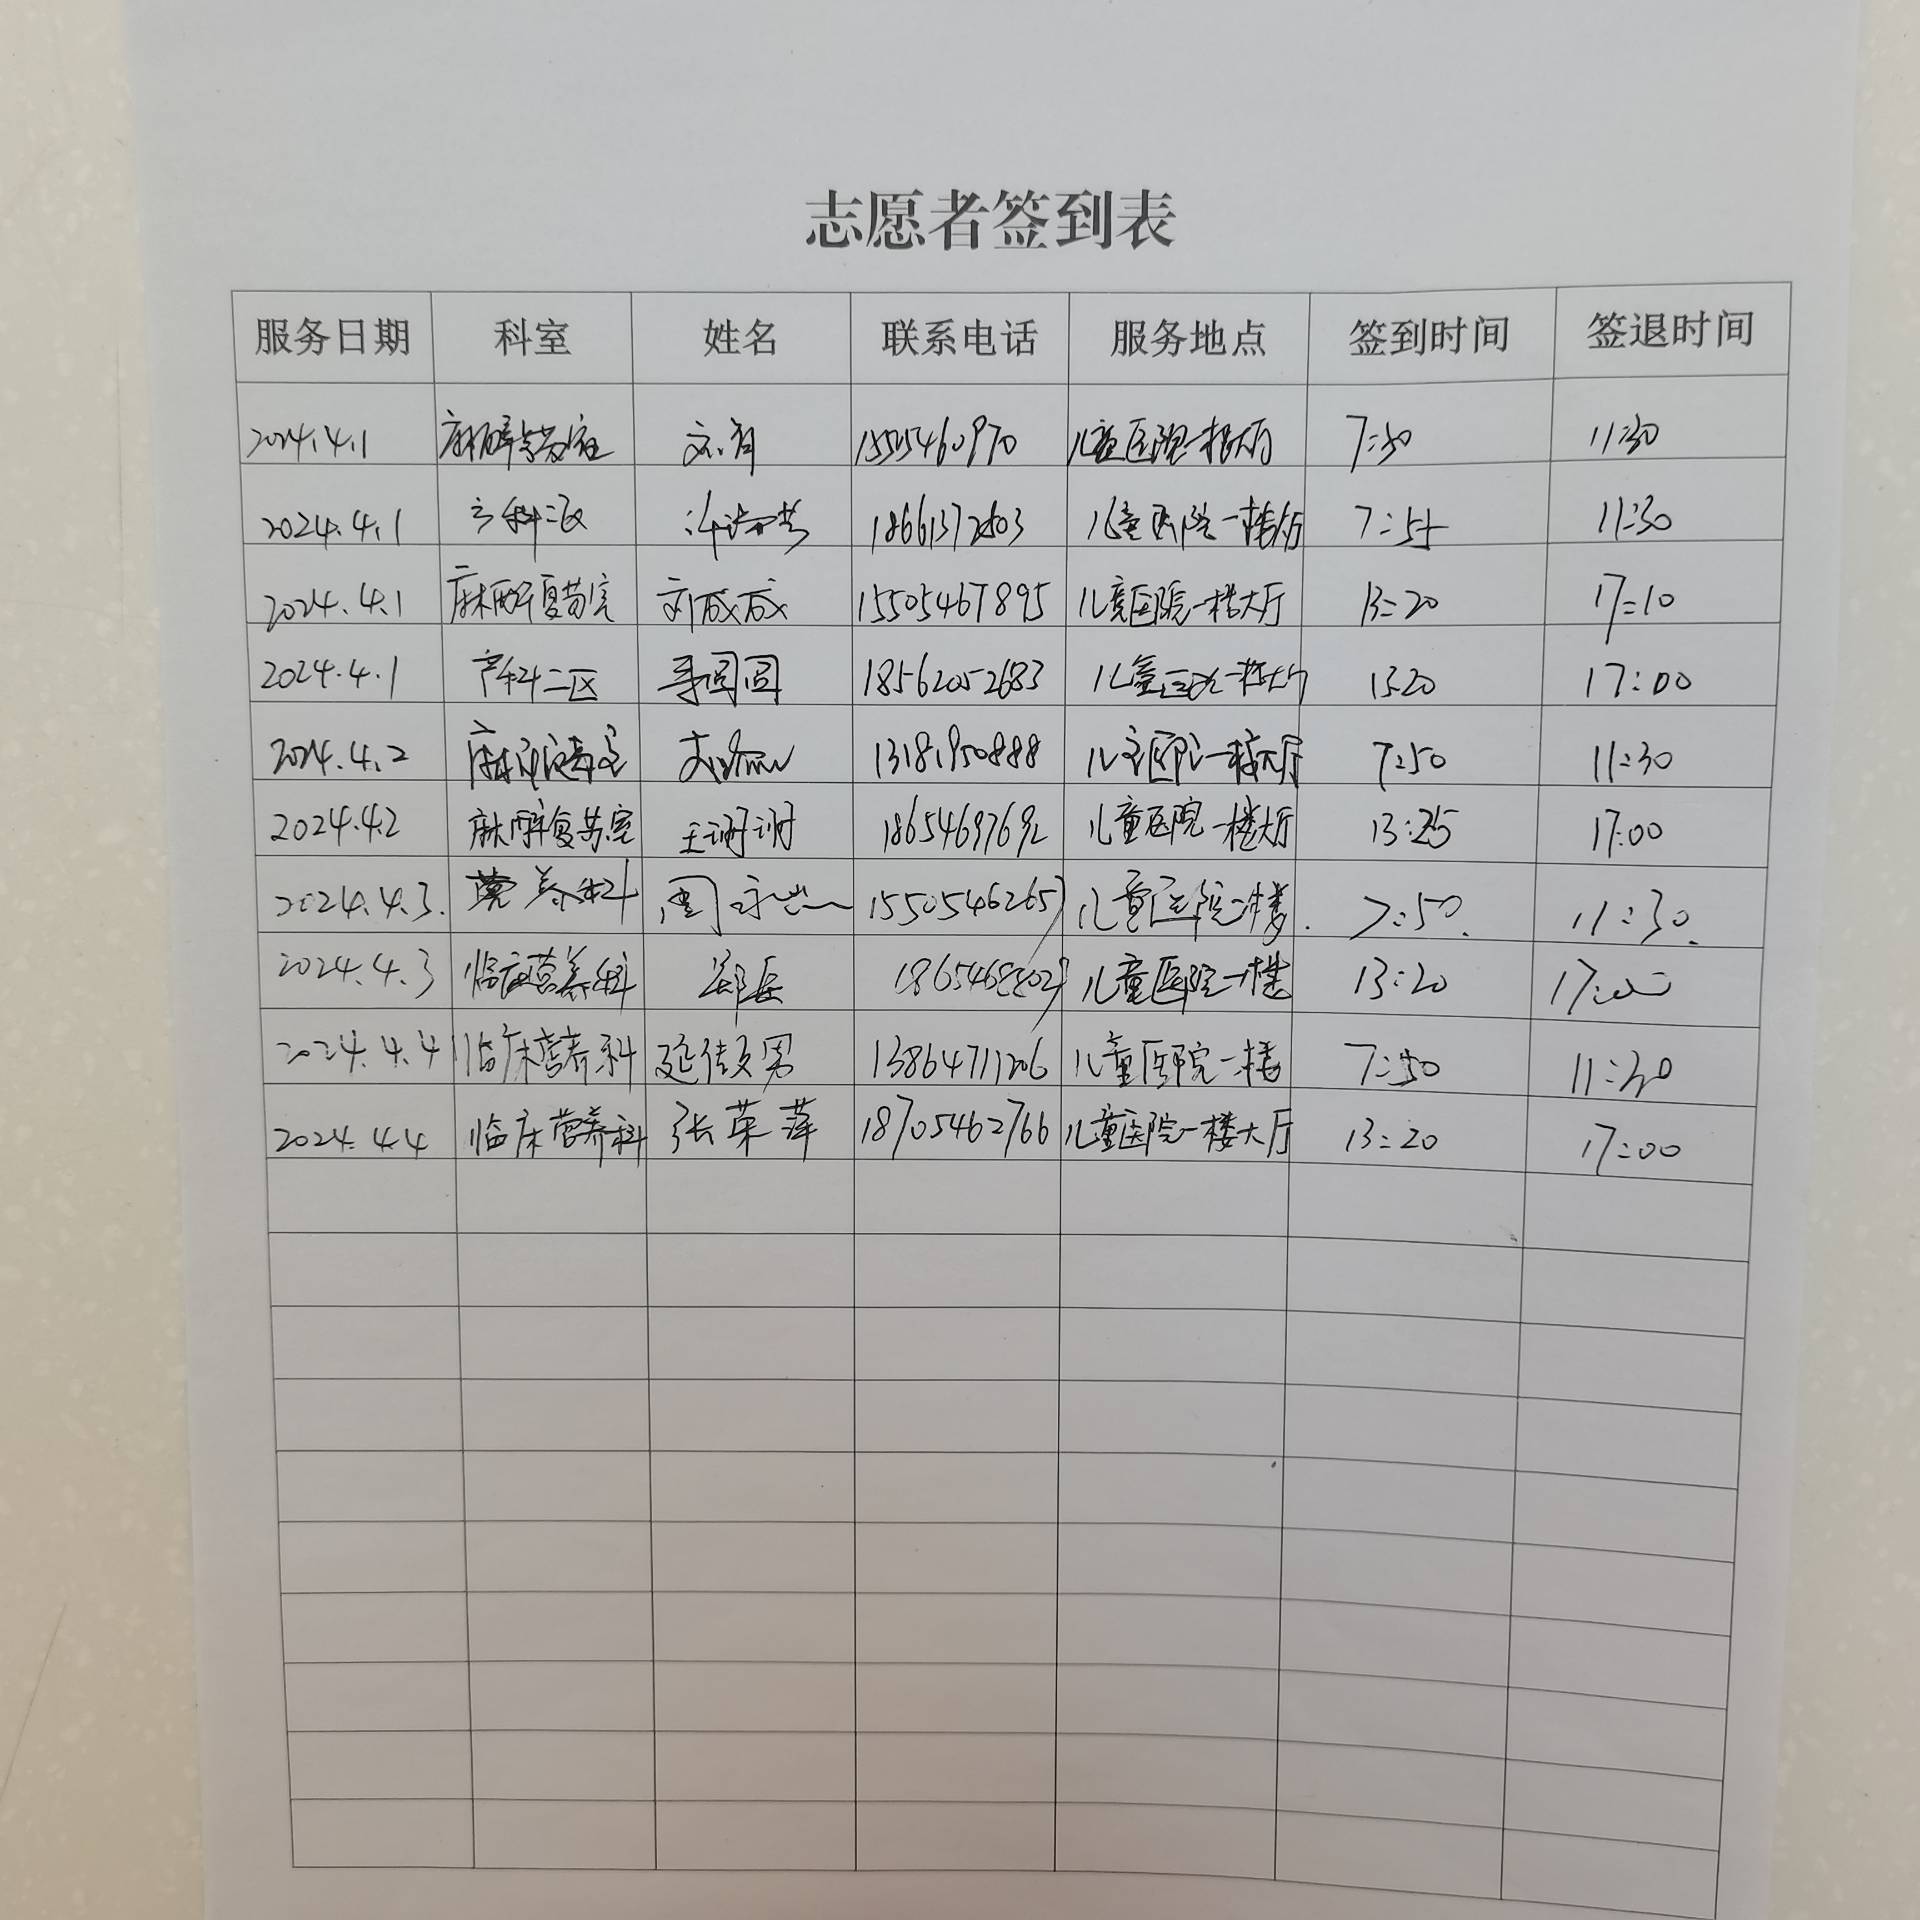 志愿者签到表
服务日期 科室 姓名 联系电话 服务地点 签到时间 签退时间
2024.4.1 儿童医院一楼大厅 7:50 11:30
2024.4.1 产科二区 儿童医院一楼大厅 7:55 11:30
2024.4.1 麻醉复苏室 刘成成 15505467895 儿童医院一楼大厅 13:20 17:10
2024.4.1 产科二区 寻圆圆 18562052683 儿童医院一楼大厅 1320 17:00
2024.4.2 麻醉复苏室 13181950888 儿童医院一楼大厅 7:50 11:30
2024.4.2 麻醉复苏室 王谢谢 18654697692 儿童医院一楼大厅 13:25 17:00
2024.4.3. 营养科 周 15505462657 儿童医院一楼. 7:50. 11:30.
2024.4.3 临床营养科 儿童医院一楼 13:20 17:00
2024.4.4 临床营养科 延俊男 13864711206 儿童医院一楼 7:50 11:30
2024.4.4 临床营养科 张荣萍 18705462766 儿童医院一楼大厅 13:20 17:00